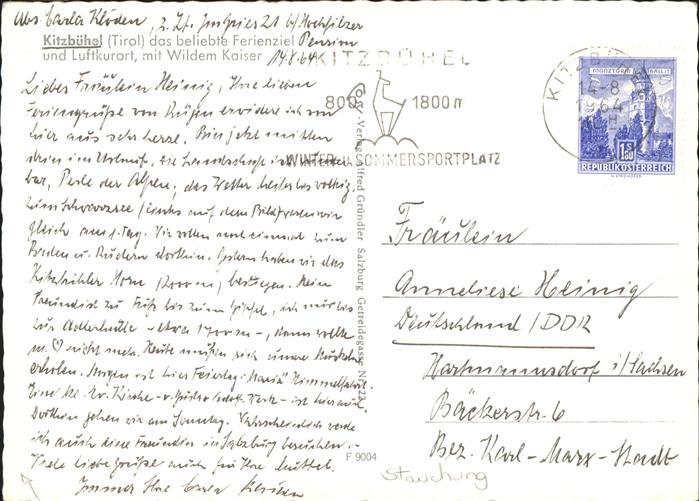 Abs. Carla Klöden, z. Zt. Jnsgries 21 b/Hochfilzer
Pension
14.8.64
Kitzbühel (Tirol) das beliebte Ferienziel
und Luftkurort, mit Wildem Kaiser
KITZBÜHEL
800 1800 m
WINTER-U. SOMMERSPORTPLATZ
KITZBÜHEL
14.-8.
1964
MÜNZTURM HALL I. T.
1.80
REPUBLIK ÖSTERREICH
Liebes Fräulein Heinig, Ihre lieben
Feriengrüße von Rügen erwidere ich von
hier aus sehr herzl. Bin jetzt mitten
drin im Urlaub, die Landschaft ist
bar, Perle der Alpen, das Wetter heiter bis wolkig.
Zum Schwarzsee /links auf dem Bild/ waren wir
gleich am 1. Tag. Wir wollen noch einmal zum
Baden u. Rudern dorthin. Gestern haben wir das
Kitzbühler Horn /2000 m/ bestiegen. Meine
Freundin zu Fuß bis zum Gipfel, ich nur bis
zur Adlerhütte - etwa 1700 m -, dann wollte
m. ♡ nicht mehr. Heute müssen sich unsere Muskeln
erholen. Morgen ist hier Feiertag: Mariä Himmelfahrt.
Eine kl. ev. Kirche ist hier auch.
Dorthin gehen wir am Sonntag. Wahrscheinlich werde
ich auch eine Freundin in Salzburg besuchen. -
Viele liebe Grüße auch für Ihre Mutter.
Immer Ihre Carla Klöden
Cos.-Verlag Alfred Gründler Salzburg Getreidegasse Nr. 22
F 9004
Fräulein
Anneliese Heinig
Deutschland /DDR
Hartmannsdorf i/Sachsen
Bäckerstr. 6
Bez. Karl-Marx-Stadt
Stauchung